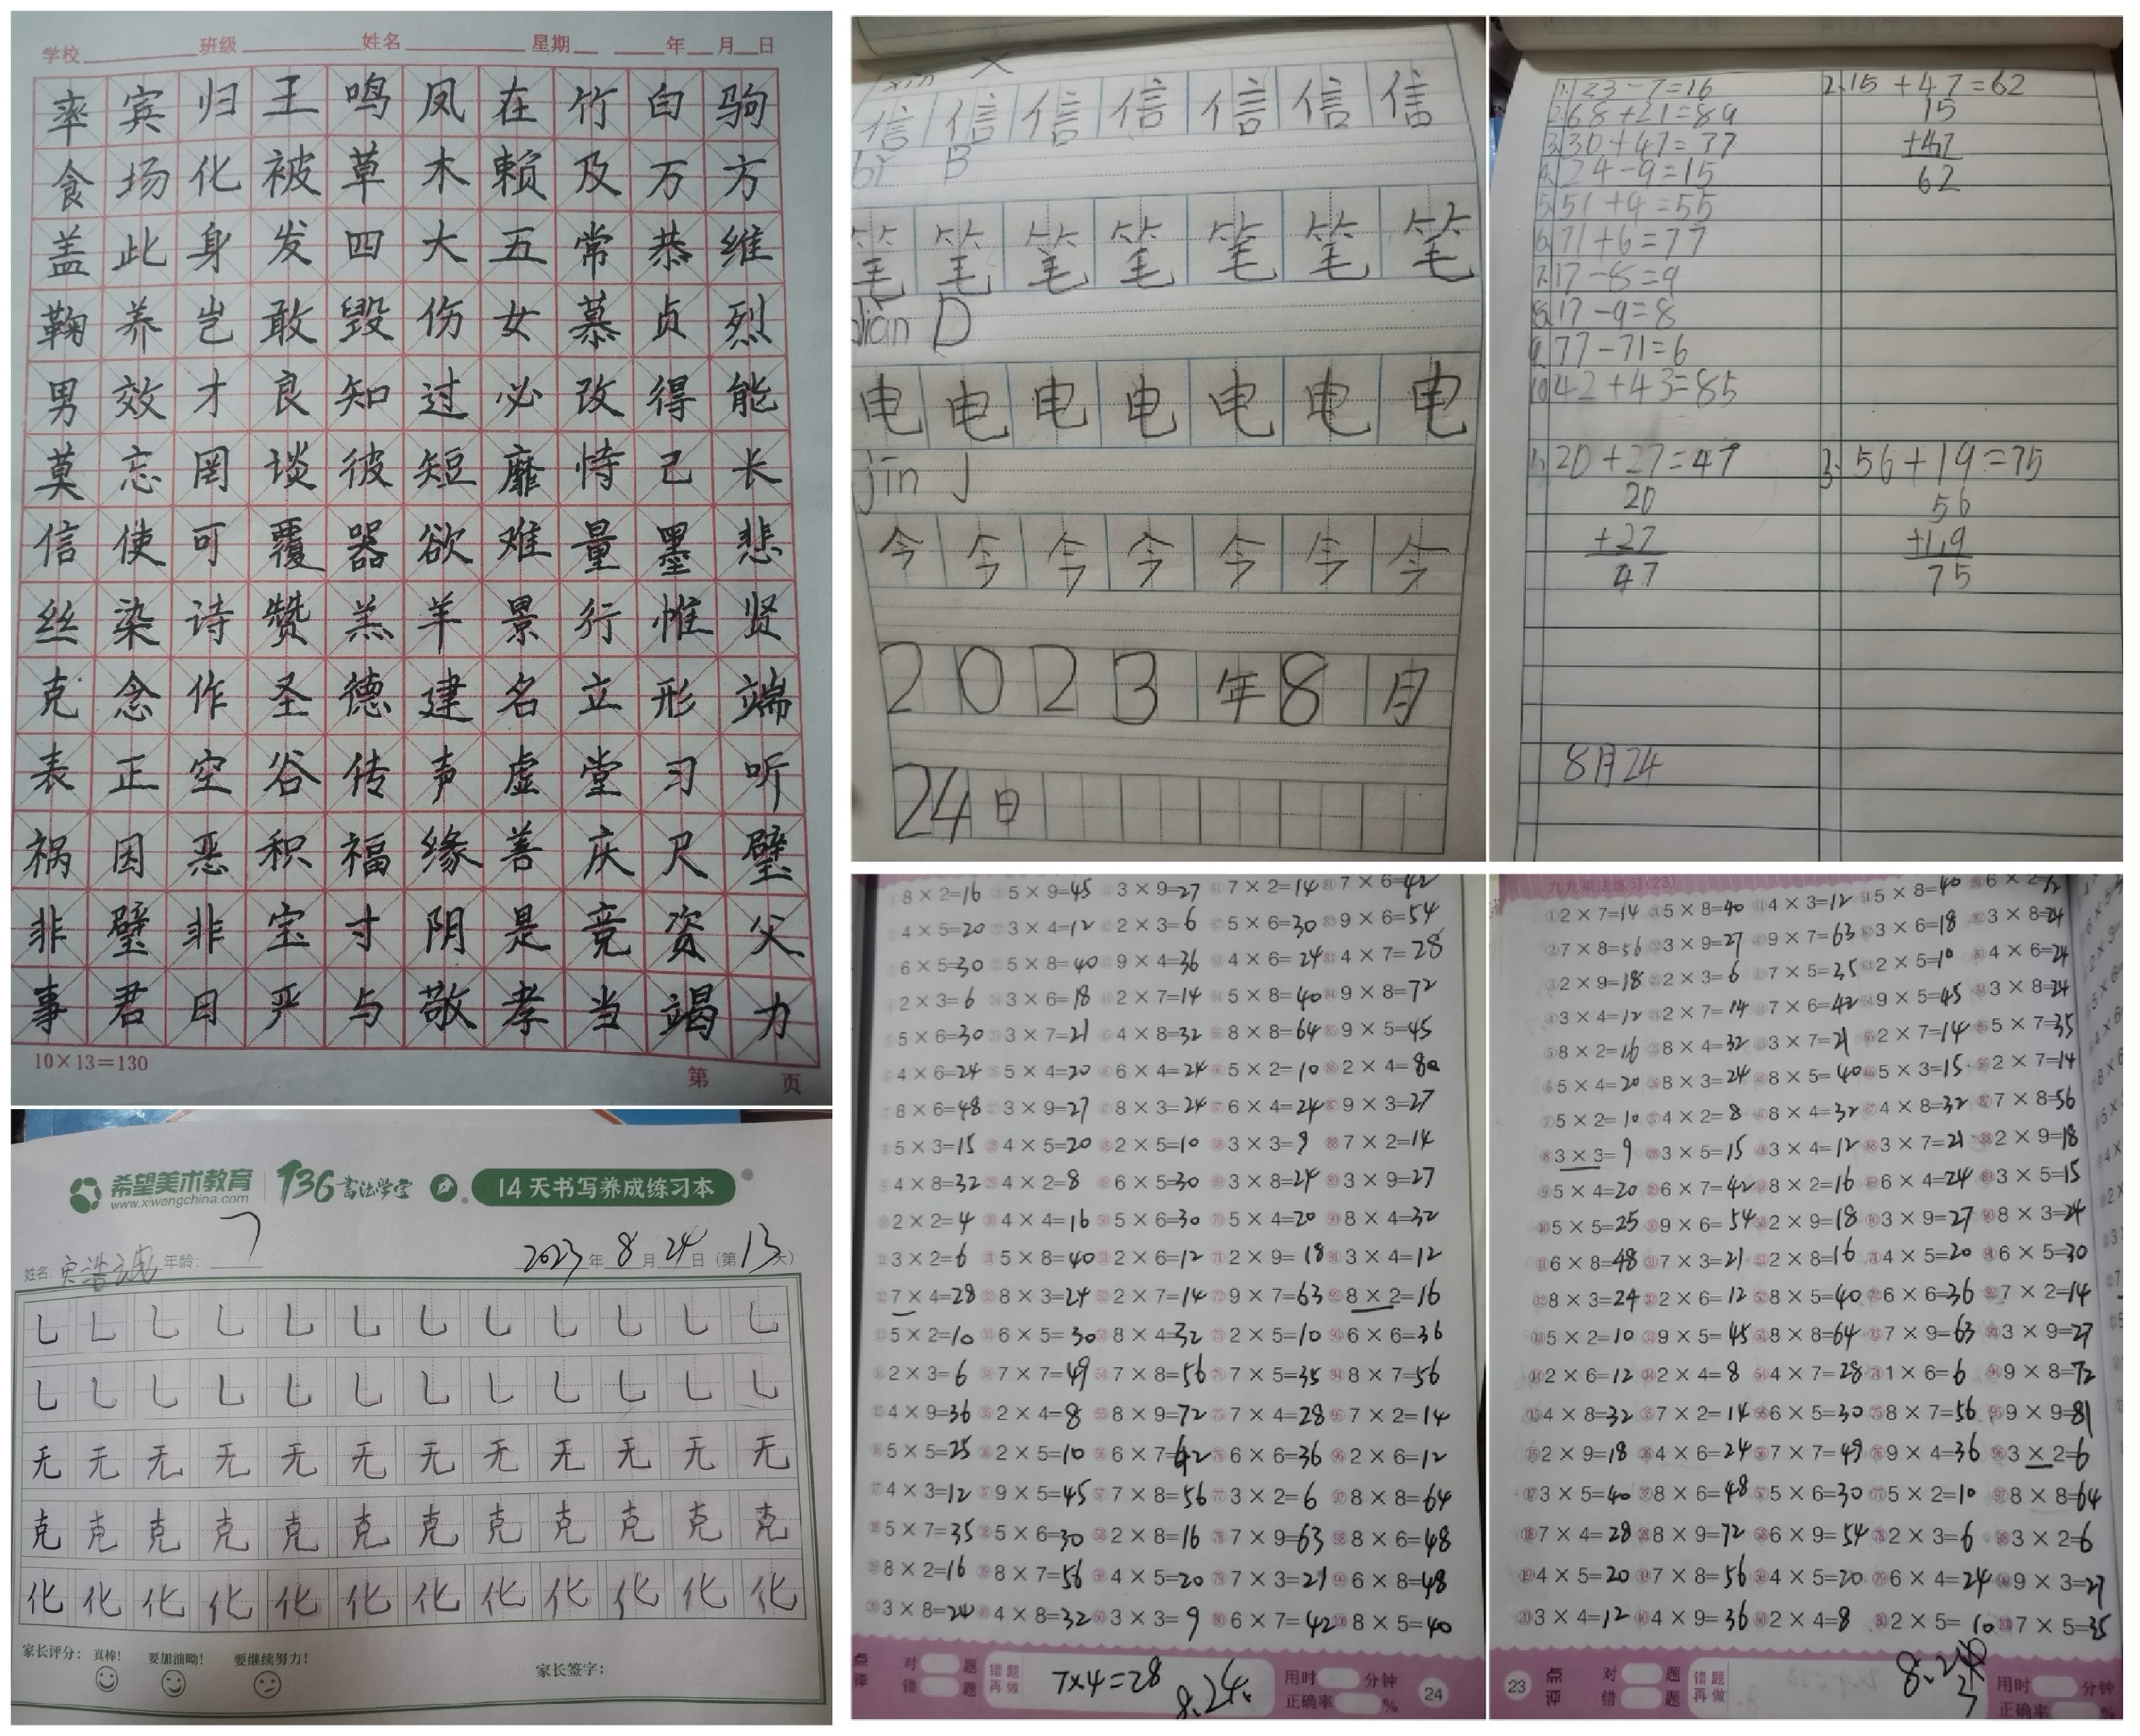 学校 班级 姓名 星期 年 月 日
率宾归王鸣凤在竹白驹
食场化被草木赖及万方
盖此身发四大五常恭维
鞠养岂敢毁伤女慕贞烈
男效才良知过必改得能
莫忘罔谈彼短靡恃己长
信使可覆器欲难量墨悲
丝染诗赞羔羊景行惟贤
克念作圣德建名立形端
表正空谷传声虚堂习听
祸因恶积福缘善庆尺璧
非璧非宝寸阴是竞资父
事君日严与敬孝当竭力
10×13=130 第 页
希望美术教育 136书法学堂 14天书写养成练习本
www.xiwangchina.com
姓名: 年龄: 7 2023年8月24日(第13天)
乚乚乚乚乚乚乚乚乚乚乚乚
乚乚乚乚乚乚乚乚乚乚乚乚
无无无无无无无无无无无无
克克克克克克克克克克克克
化化化化化化化化化化化化
家长评分: 真棒! 要加油呦! 要继续努力! 家长签字:
xin X
信信信信信信信
bǐ B
笔笔笔笔笔笔笔
diàn D
电电电电电电电
jīn J
今今今今今今今
2023年8月
24日
1. 23-7=16
2. 68+21=89
3. 30+47=77
4. 24-9=15
5. 51+4=55
6. 71+6=77
7. 17-8=9
8. 17-9=8
9. 77-71=6
10. 42+43=85
2. 15+47=62
15
+47
62
1. 20+27=47
20
+27
47
3. 56+19=75
56
+19
75
8月24
8×2=16 5×9=45 3×9=27 7×2=14 7×6=42
4×5=20 3×4=12 2×3=6 5×6=30 9×6=54
6×5=30 5×8=40 9×4=36 4×6=24 4×7=28
2×3=6 3×6=18 2×7=14 5×8=40 9×8=72
5×6=30 3×7=21 4×8=32 8×8=64 9×5=45
4×6=24 5×4=20 6×4=24 5×2=10 2×4=8
8×6=48 3×9=27 8×3=24 6×4=24 9×3=27
5×3=15 4×5=20 2×5=10 3×3=9 7×2=14
4×8=32 4×2=8 6×5=30 3×8=24 3×9=27
2×2=4 4×4=16 5×6=30 5×4=20 8×4=32
3×2=6 5×8=40 2×6=12 2×9=18 3×4=12
7×4=28 8×3=24 2×7=14 9×7=63 8×2=16
5×2=10 6×5=30 8×4=32 2×5=10 6×6=36
2×3=6 7×7=49 7×8=56 7×5=35 8×7=56
4×9=36 2×4=8 8×9=72 7×4=28 7×2=14
5×5=25 2×5=10 6×7=42 6×6=36 2×6=12
4×3=12 9×5=45 7×8=56 3×2=6 8×8=64
5×7=35 5×6=30 2×8=16 7×9=63 8×6=48
8×2=16 8×7=56 4×5=20 7×3=21 6×8=48
3×8=24 4×8=32 3×3=9 6×7=42 8×5=40
点评 对 题 错 题 错题再做 7×4=28 8.24. 用时 分钟 正确率 % 24
九九乘法练习(23)
2×7=14 5×8=40 4×3=12 5×8=40 6×2=12
7×8=56 3×9=27 9×7=63 3×6=18 3×8=24
2×9=18 2×3=6 7×5=35 2×5=10 4×6=24
3×4=12 2×7=14 7×6=42 9×5=45 3×8=24
8×2=16 8×4=32 3×7=21 2×7=14 5×7=35
5×4=20 8×3=24 8×5=40 5×3=15 2×7=14
5×2=10 4×2=8 8×4=32 4×8=32 7×8=56
3×3=9 3×5=15 3×4=12 3×7=21 2×9=18
5×4=20 6×7=42 8×2=16 6×4=24 3×5=15
5×5=25 9×6=54 2×9=18 3×9=27 8×3=24
6×8=48 7×3=21 2×8=16 4×5=20 6×5=30
8×3=24 2×6=12 8×5=40 6×6=36 7×2=14
5×2=10 9×5=45 8×8=64 7×9=63 3×9=27
2×6=12 2×4=8 4×7=28 1×6=6 9×8=72
4×8=32 7×2=14 6×5=30 8×7=56 9×9=81
2×9=18 4×6=24 7×7=49 9×4=36 3×2=6
3×5=40 8×6=48 5×6=30 5×2=10 8×8=64
7×4=28 8×9=72 6×9=54 2×3=6 3×2=6
4×5=20 7×8=56 4×5=20 6×4=24 9×3=27
3×4=12 4×9=36 2×4=8 2×5=10 7×5=35
23 点评 对 题 错 题 错题再做 用时 分钟 正确率 %